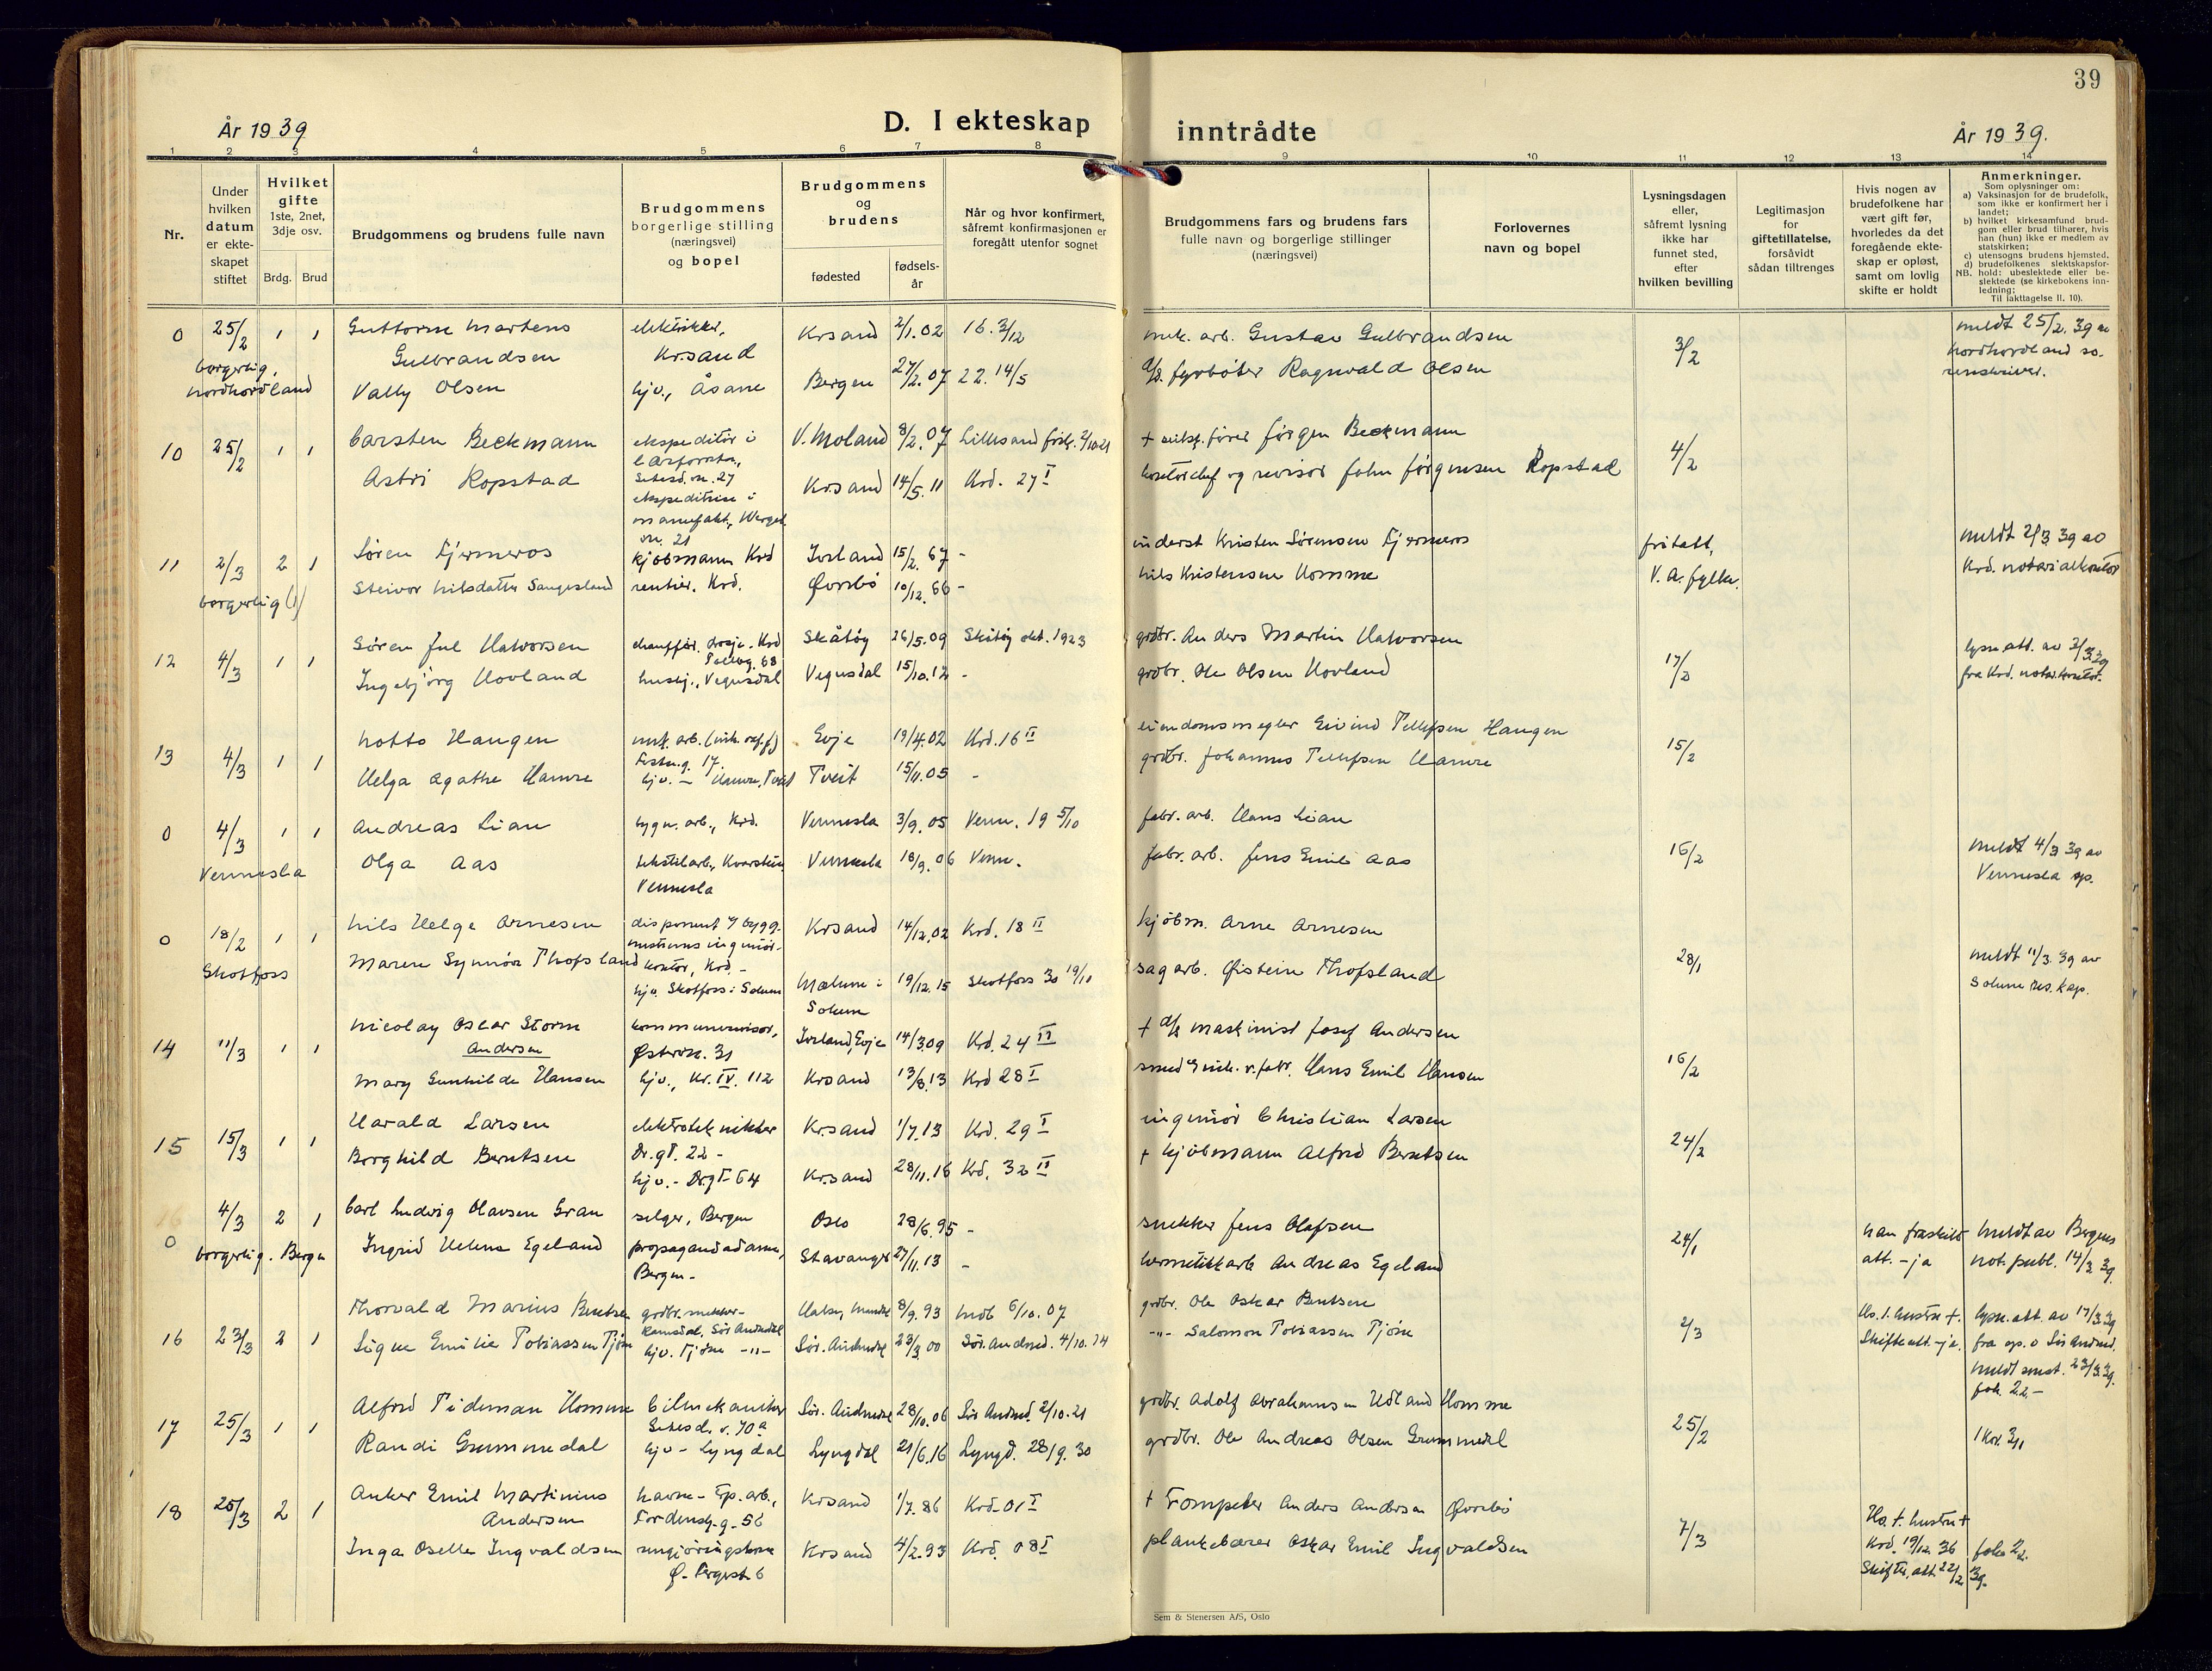 39
År 1939
D. I ekteskap inntrådte
År 1939.
1 2 3 4 5 6 7 8 9 10 11 12 13 14
Nr.
Under hvilken datum er ekte-skapet stiftet
Hvilket gifte 1ste, 2net, 3dje osv.
Brdg. Brud
Brudgommens og brudens fulle navn
Brudgommens borgerlige stilling (næringsvei) og bopel
Brudgommens og brudens
fødested
fødsels-år
Når og hvor konfirmert, såfremt konfirmasjonen er foregått utenfor sognet
Brudgommens fars og brudens fars fulle navn og borgerlige stillinger (næringsvei)
Forlovernes navn og bopel
Lysningsdagen eller, såfremt lysning ikke har funnet sted, efter hvilken bevilling
Legitimasjon for giftetillatelse, forsåvidt sådan tiltrenges
Hvis nogen av brudefolkene har vært gift før, hvorledes da det foregående ekte-skap er opløst, samt om lovlig skifte er holdt
Anmerkninger.
Som oplysninger om:
a) Vaksinasjon for de brudefolk, som ikke er konfirmert her i landet;
b) hvilket kirkesamfund brud-gom eller brud tilhører, hvis han (hun) ikke er medlem av statskirken;
c) utensogns brudens hjemsted.
d) brudefolkenes slektskapsfor-
NB. hold: ubeslektede eller be-slektede (se kirkebokens inn-ledning;
Til iakttagelse II, 10).
0 25/2 1 1 Guttorm Martens Gulbrandsen elektriker, Krsand Krsand 2/1.02 16. 3/12 mek. arb. Gustav Gulbrandsen 3/2 meldt 25/2. 39 av
borgerlig, Nordhordland Vally Olsen hjv., Åsane Bergen 27/2.07 22. 14/5 fyrbøter Ragnvald Olsen Nordhordland so-renskriver.
10 25/2 1 1 Carsten Beckmann ekspeditør i V. Moland 8/2.07 Lillesand + Jørgen Beckmann 4/2
Astri Ropstad Setesd.v. 27 ekspeditrise i manufakt., Krsand 14/5.11 Krd. 27 I kontorchef og revisor John Jørgensen Ropstad
11 2/3 2 1 Søren Fjermeros kjøbmann Krd Iveland 15/2.67 - inderst Kristen Sørensen Fjermeros fritatt, V. A. fylke. meldt 2/3 39 av
borgerlig (1) Steivor Nilsdatter Sangesland rentier. Krd. Øvrebø 10/12.66 - Nils Kristensen Homme Krd. notarialkontor
12 4/3 1 1 Søren Juel Halvorsen chauffør, drosje. Krd Skåtøy 26/5.09 Skåtøy okt. 1923 grdbr. Anders Martin Halvorsen 17/2 lysn.att. av 3/3 39
Ingebjørg Hovland husbj., Vegusdal Vegusdal 15/10.12 - grdbr. Ole Olsen Hovland fra Krd. notar.kontor.
13 4/3 1 1 Notto Haugen Evje 19/4.02 Krd. 16 II eiendomsmegler Eivind Tellefsen Haugen 15/2
Helga Agathe Hamre hjv. - Hamre, Tveit Tveit 15/11.05 - grdbr. Johannes Tellefsen Hamre
0 4/3 1 1 Andreas Lian bygn. arb., Krd. Vennesla 3/9.05 Venn. 19 5/10 fabr. arb. Hans Lian 16/2 meldt 4/3 39 av
Vennesla Olga Aas tekstilarb., Kvarstein, Vennesla Vennesla 18/9.06 Venn. fabr. arb. Jens Emil Aas Vennesla sp.
0 18/2 1 1 Nils Helge Arnesen disponent v/ bygg-mesternes ingeniør-kontor, Krd. - Krsand 14/12.02 Krd. 18 II kjøbm. Arne Arnesen 28/1 meldt 11/3. 39 av
Skotfoss Maren Synnøve Thofsland hjv. Skotfoss i Solum Mælum i Solum 19/12.15 Skotfoss 30 19/10 sagarb. Øistein Thofsland Solum res. kap.
14 11/3 1 1 Nicolay Oscar Storm Andersen kommunerevisor, Østerv. 31 Iveland, Evje 14/3.09 Krd. 24 II + maskinist Josef Andersen 16/2
Mary Gunhilde Hansen hjv., Kr. IV. 112 Krsand 13/8.13 Krd 28 I smed Hans Emil Hansen
15 15/3 1 1 Harald Larsen elektrotekniker Dr.gt. 22 - Krsand 1/7.13 Krd. 29 I ingeniør Christian Larsen 24/2
Borghild Berntsen hjv. - Dr.gt 64 Krsand 28/11.16 Krd. 32 II + kjøbmann Alfred Berntsen
0 4/3 2 1 Carl Ludvig Olavsen Gran selger, Bergen Oslo 28/6.95 - snekker Jens Olafsen 24/1 han fraskilt meldt av Bergens
borgerlig. Bergen Ingrid Helene Egeland propagandadame, Bergen - Stavanger 27/11.13 - hermetikkarb Andreas Egeland att. - ja not. publ. 14/3 39.
16 23/3 2 1 Thorvald Marius Berntsen grdbr. snekker - Sør Audnedal Halse, Mandal 8/9.93 6/10.07 grdbr. Ole Oskar Berntsen 2/3 Hs. 1. hustru +. lysn. att. av 17/3 39
Signe Emilie Tobiassen Tjøm hjv. Tjøm -"- Sør. Audnedal 23/3.00 Sør. Audned. 4/10.14 -"- Salomon Tobiassen Tjøm Skifteatt. - ja. fra sp. i Sør Audned. meldt 23/3.39. fol. 22 -
17 25/3 1 1 Alfred Tideman Homme bilmekaniker Setesd. v. 70a Sør. Audnedal 28/10.06 Sør Audned. 2/10.21 grdbr. Adolf Abrahamsen Udland Homme 25/2
Randi Grummedal hjv - Lyngdal Lyngdal 21/6.16 Lyngd. 28/9.30 grdbr. Ole Andreas Olsen Grummedal 1 Kor. 3/11
18 25/3 2 1 Anker Emil Martinius Andersen havne - Tordenskj.g. 56 Krsand 1/7.86 Krd. 01 I + Trompeter Anders Andersen Øvrebø 7/3 Hs. f. hustru +
Inga Oselle Ingvaldsen rengjøringskone Krsand 4/2.93 Krd. 08 I plankebærer Oskar Emil Ingvaldsen Krd. 19/12 36 fol. 22.
Skifter. att 22/2 39.
Sem & Stenersen A/S, Oslo